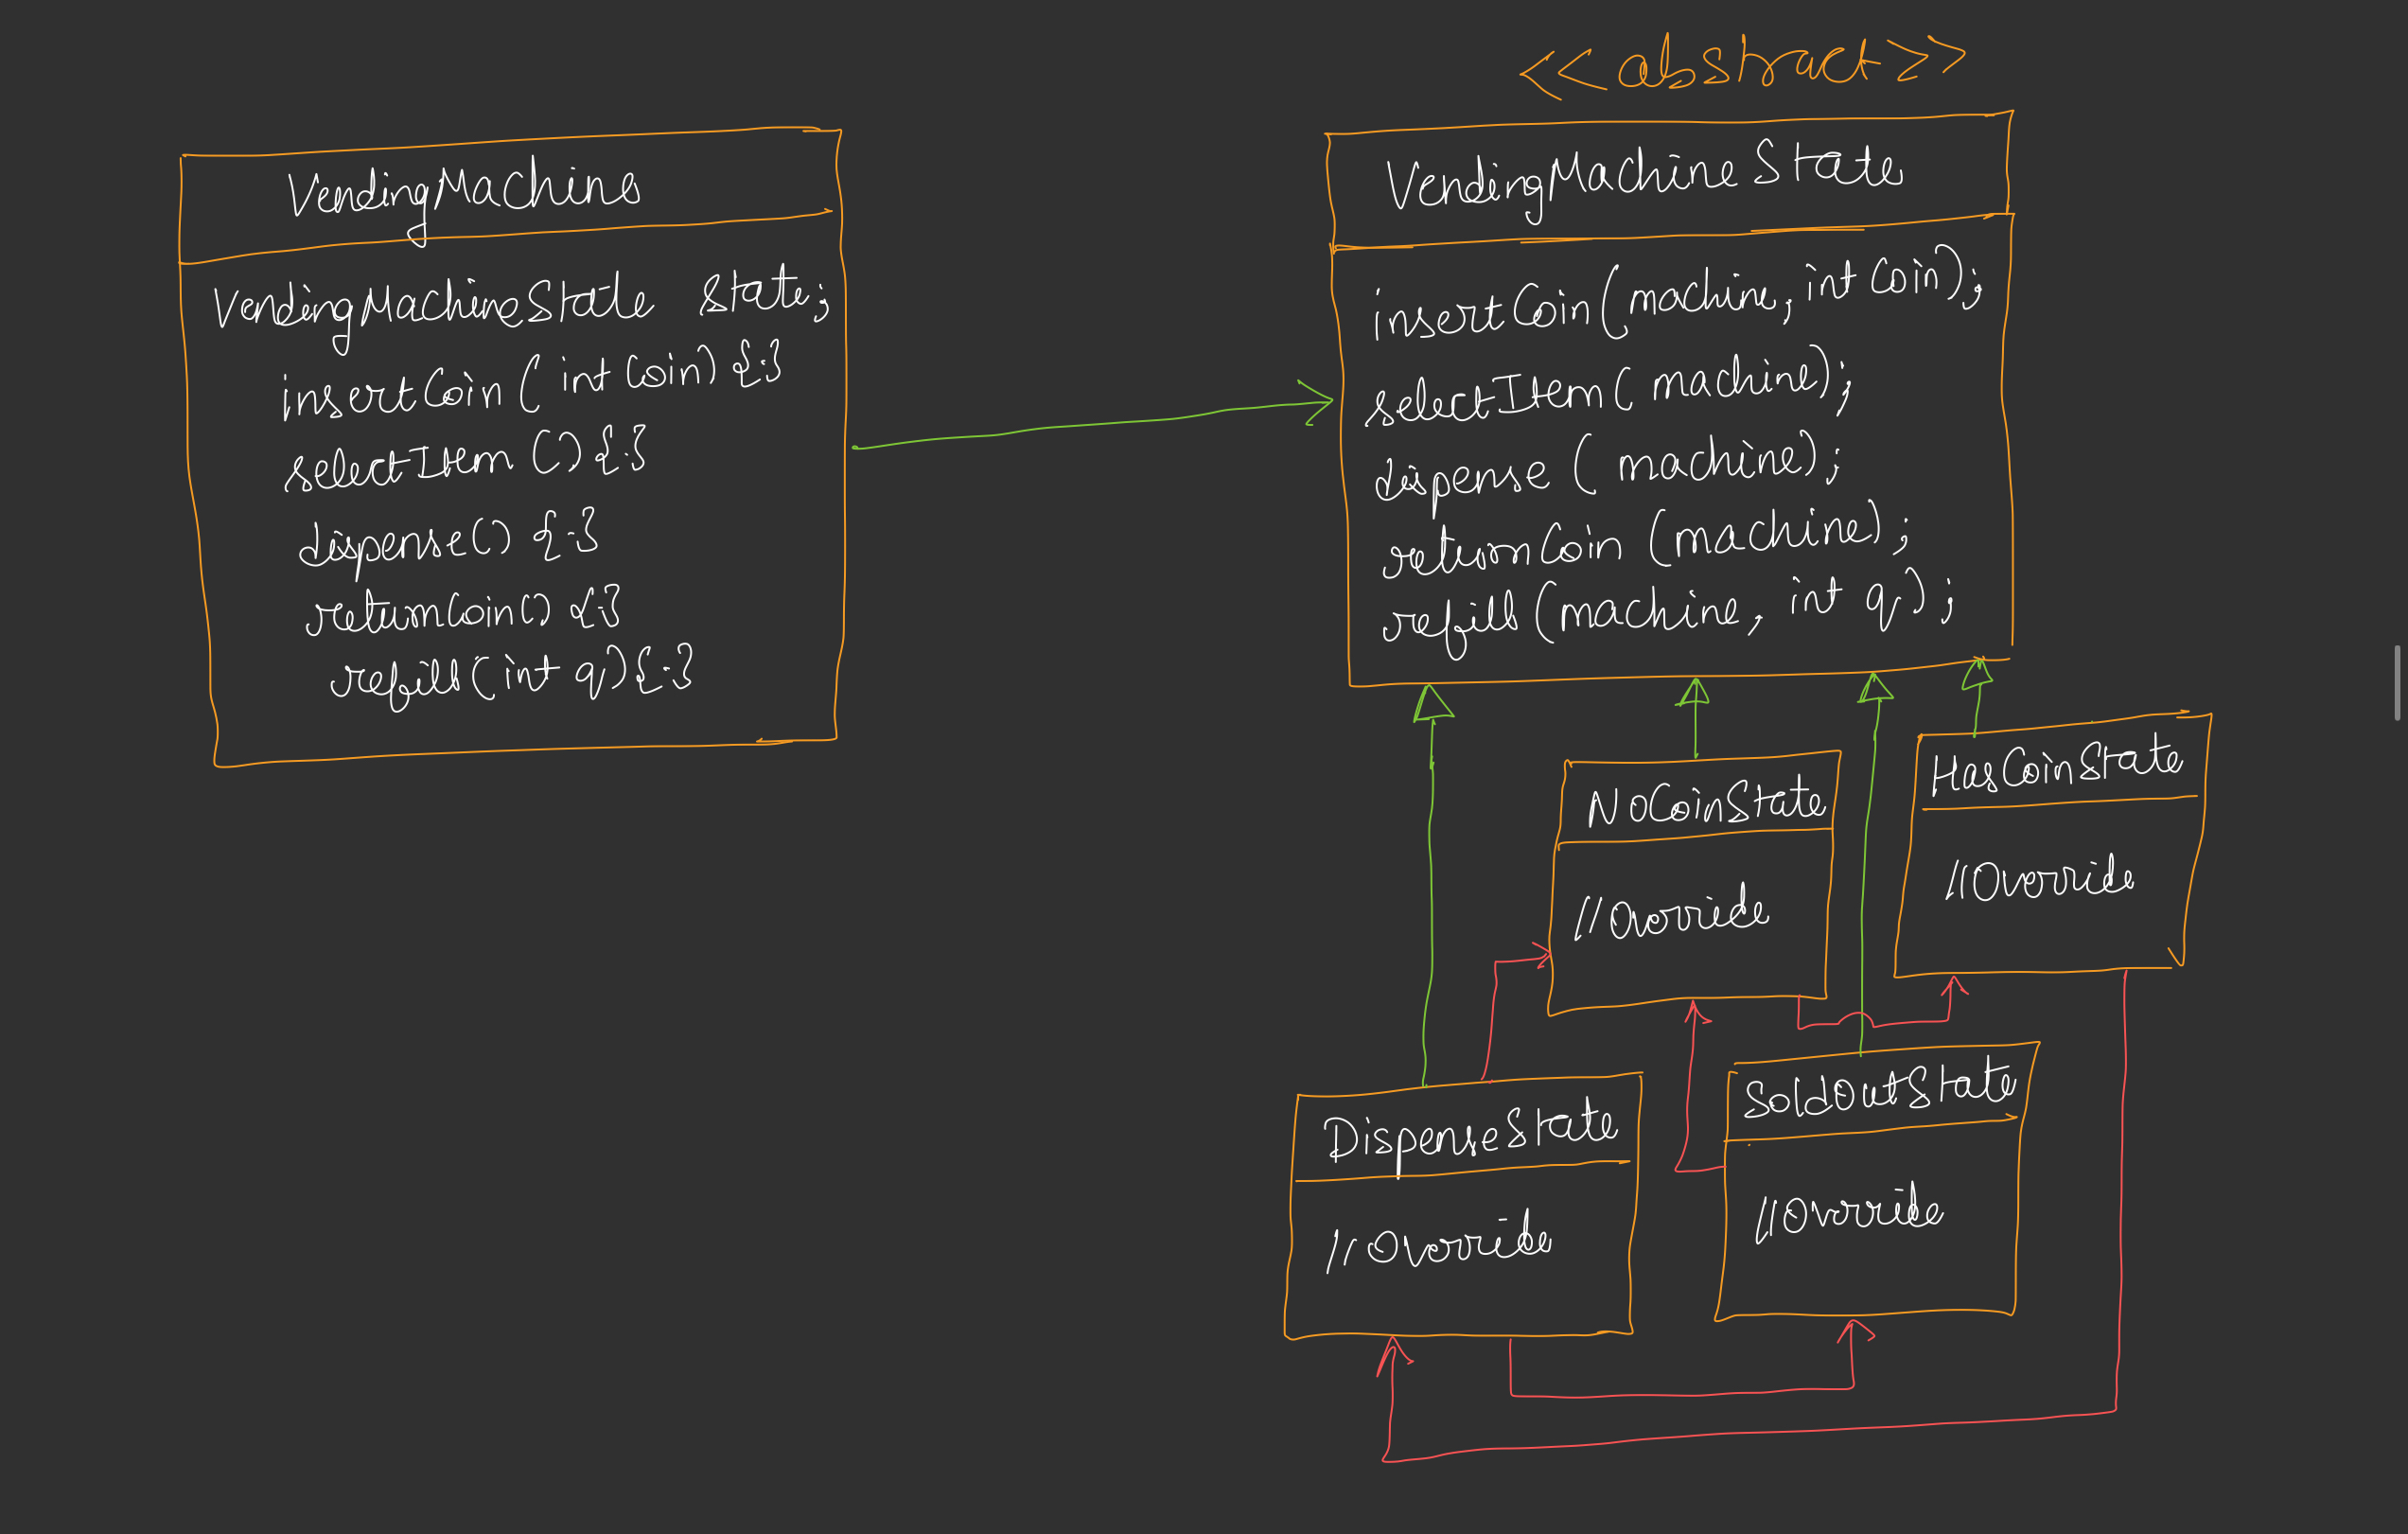 <<abstract>>
VendingMachine
VendingMachineState state;
insertCoin(int Coin) {:}
selectItem() {:}
dispense() {:}
returnCoin() {:}
refill(int q) {:}
VendingMachineState
insertCoin(machine, int Coin);
selectItem(machine);
dispense(machine);
returnCoin(machine);
refill(machine, int q);
NoCoinState
//Override
HasCoinState
//Override
DispenseState
//Override
SoldOutState
//Override